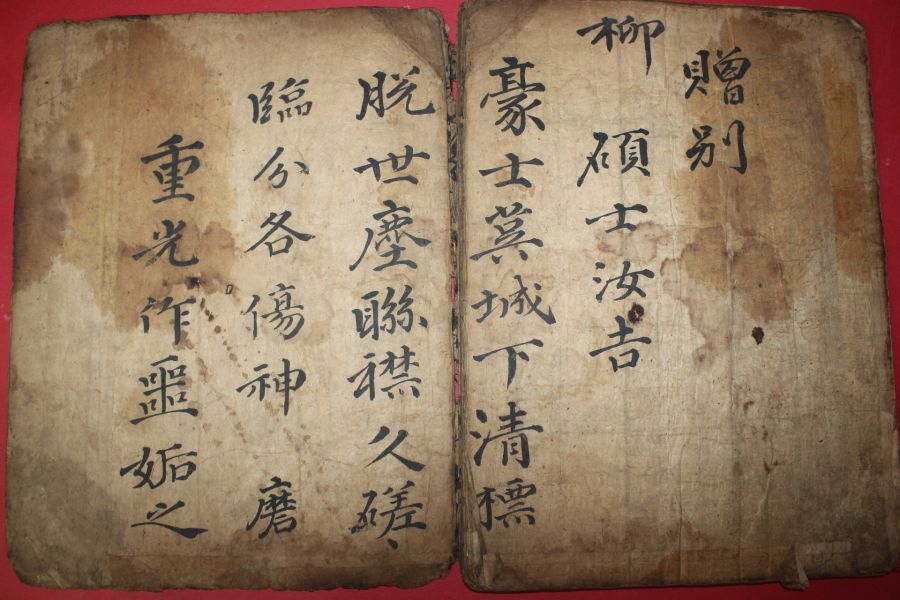 贈別
柳碩士汝吉
豪士萁城下清標
脱世塵聯襟久磋
臨分各傷神磨
重光作噩姤之